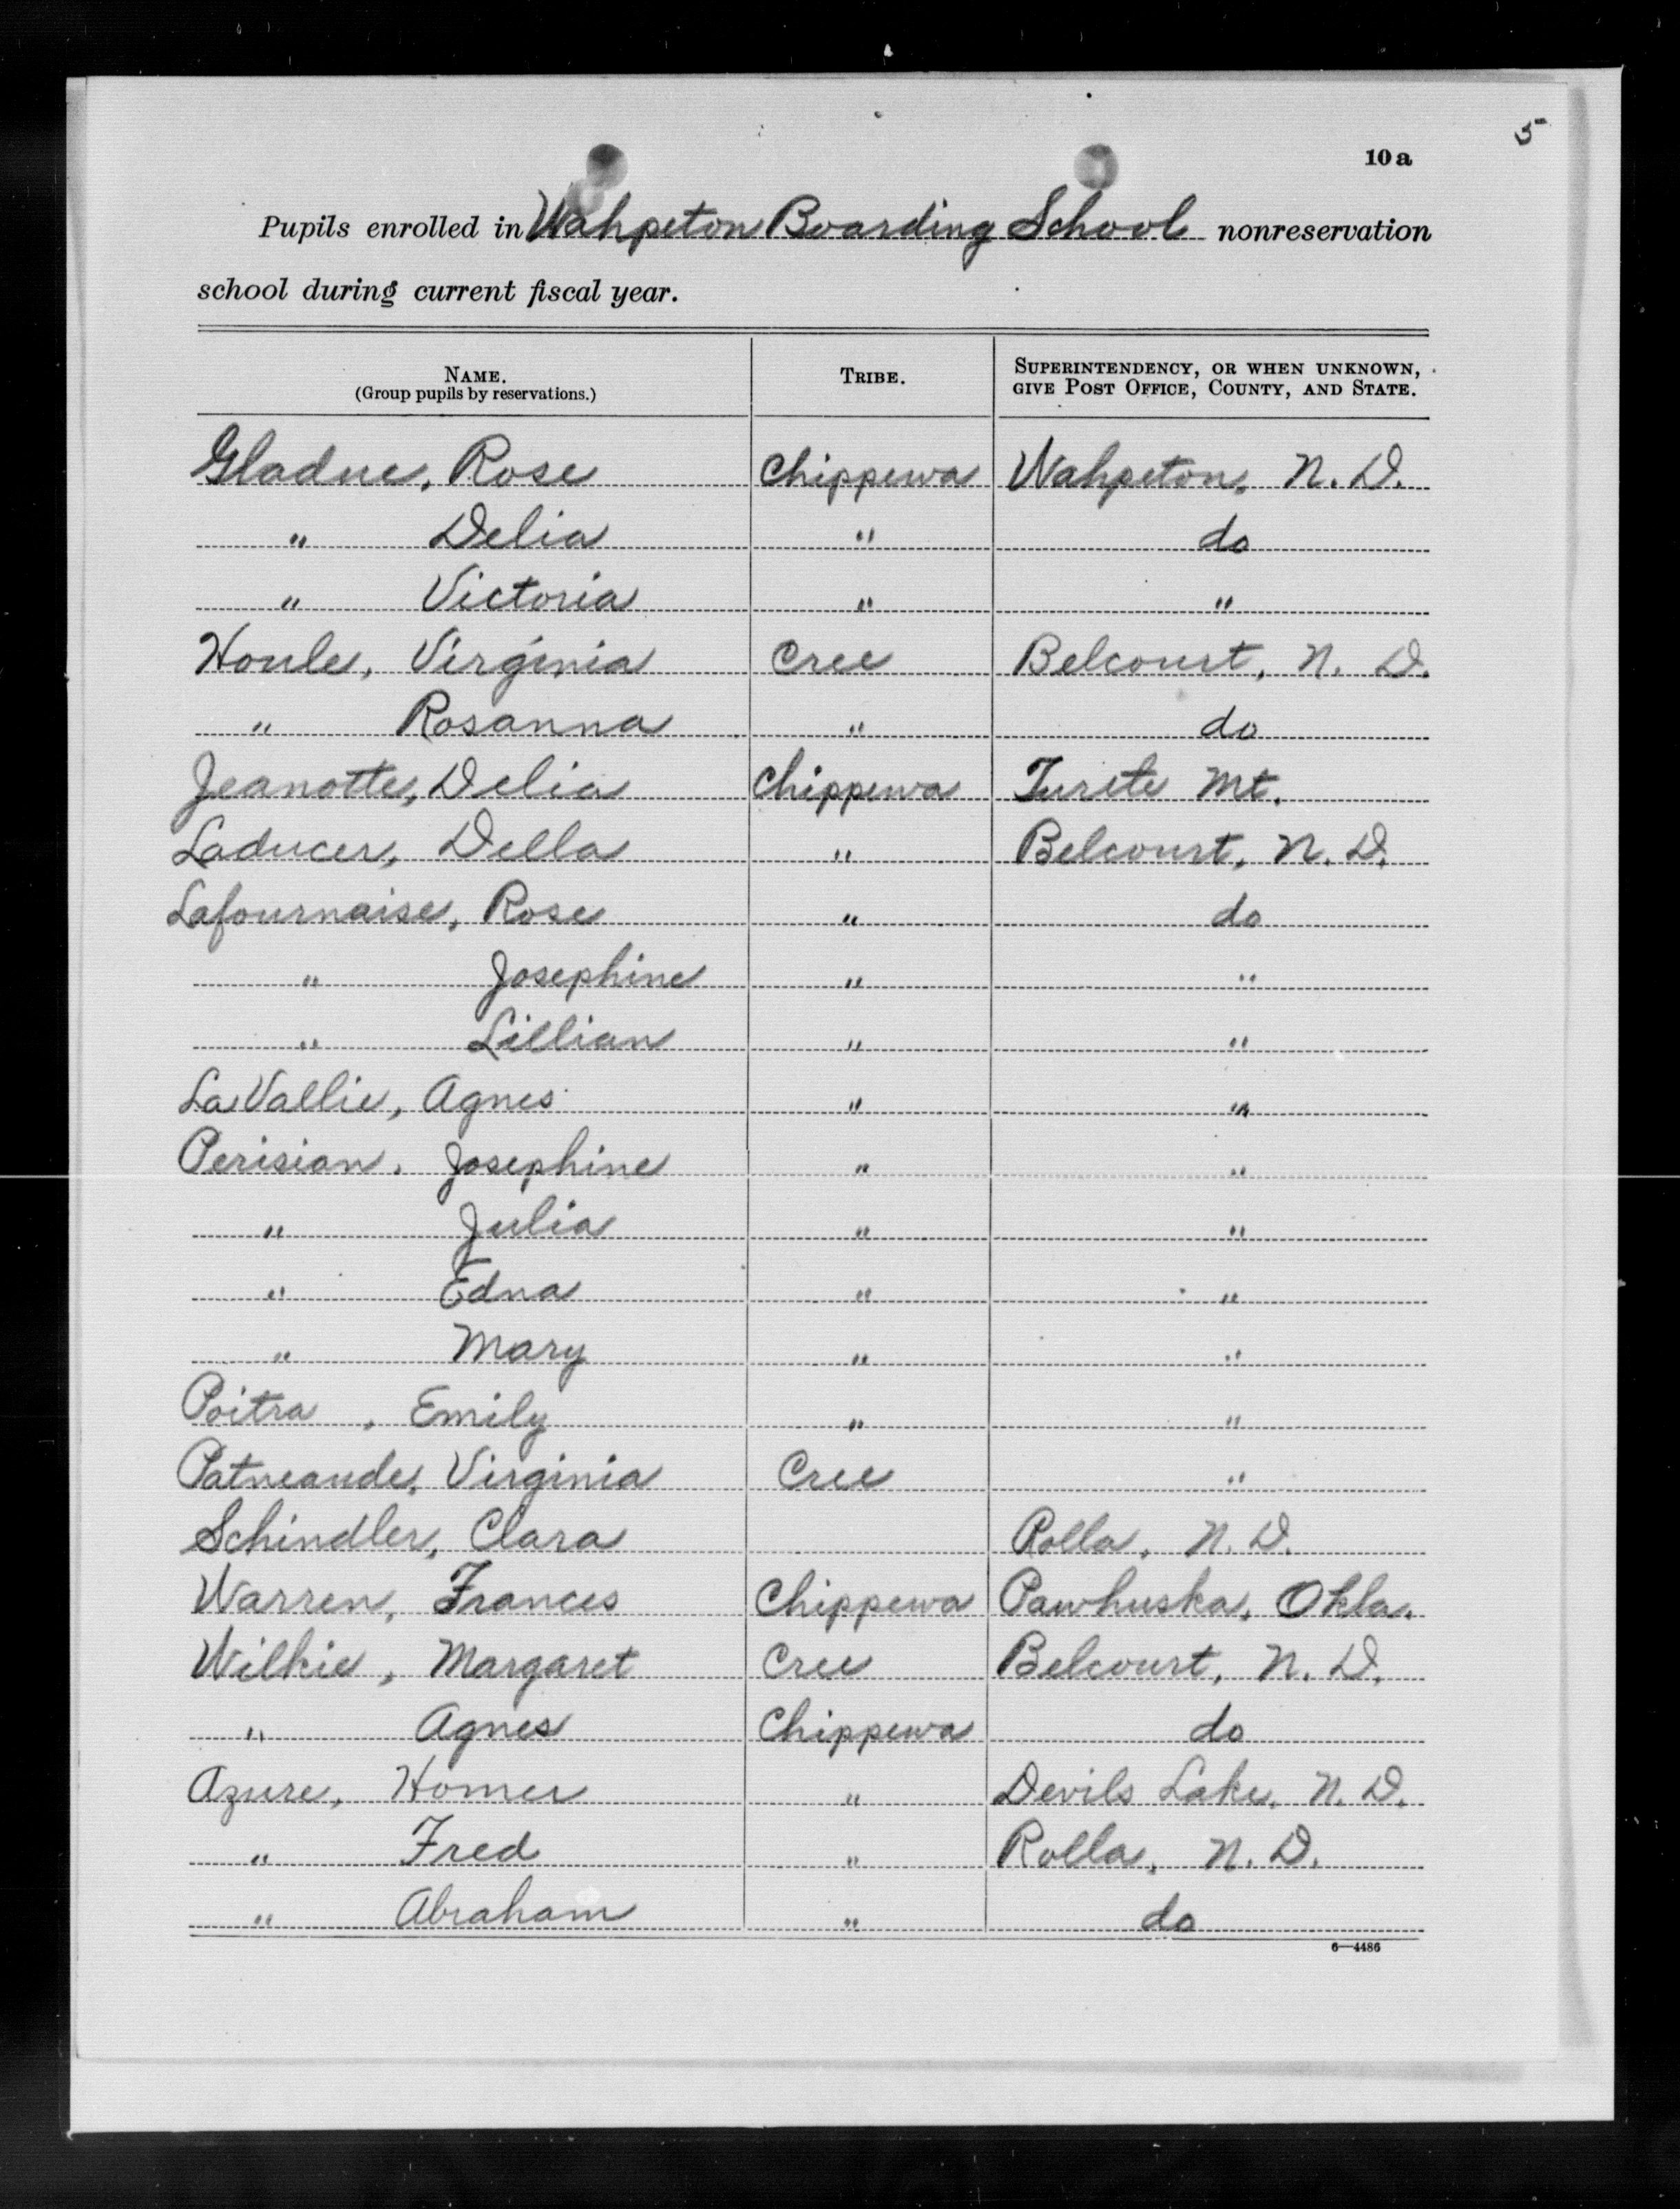 5
10 a
Pupils enrolled in Wahpeton Boarding School nonreservation
school during current fiscal year.
NAME. TRIBE. SUPERINTENDENCY, OR WHEN UNKNOWN,
(Group pupils by reservations.) GIVE POST OFFICE, COUNTY, AND STATE.
Gladue, Rose Chippewa Wahpeton, N. D.
" Delia " do
" Victoria " "
Houle, Virginia Cree Belcourt, N. D.
" Rosanna " do
Jeanotte, Delia Chippewa Turtle Mt.
Laducer, Della " Belcourt, N. D.
Lafournaise, Rose " do
" Josephine " "
" Lillian " "
LaVallie, Agnes " "
Perisian, Josephine " "
" Julia " "
" Edna " "
" Mary " "
Poitra, Emily " "
Patneaude, Virginia Cree "
Schindler, Clara Rolla, N. D.
Warren, Frances Chippewa Pawhuska, Okla.
Wilkie, Margaret Cree Belcourt, N. D.
" Agnes Chippewa do
Azure, Homer " Devils Lake, N. D.
" Fred " Rolla, N. D.
" Abraham " do
6—4486